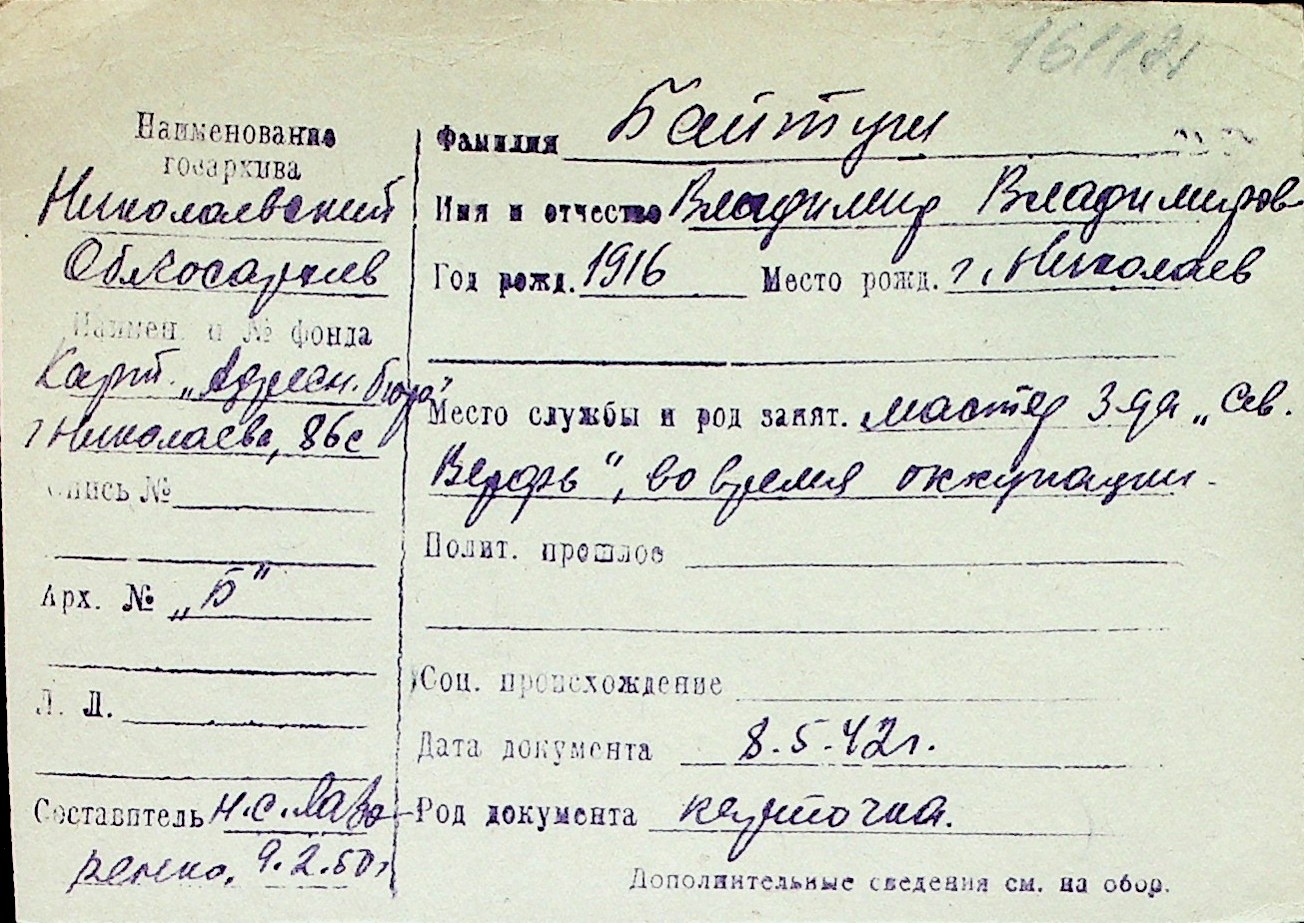 Наименование
госархива
Николаевский
Облгосархив
Наимен. и № фонда
Карт. „Адресн. бюро"
г Николаева, 86с
Опись №
Арх. № „Б"
Л. Л.
Составитель Н.С. Лаво-
ренко, 9.2.50г
Фамилия Байтун
Имя и отчество Владимир Владимиров.
Год рожд. 1916 Место рожд. г. Николаев
Место службы и род занят. мастер з-да „Сев.
Верфь", во время оккупации.
Полит. прошлое
Соц. происхождение
Дата документа 8.5.42г.
Род документа карточка.
Дополнительные сведения см. на обор.